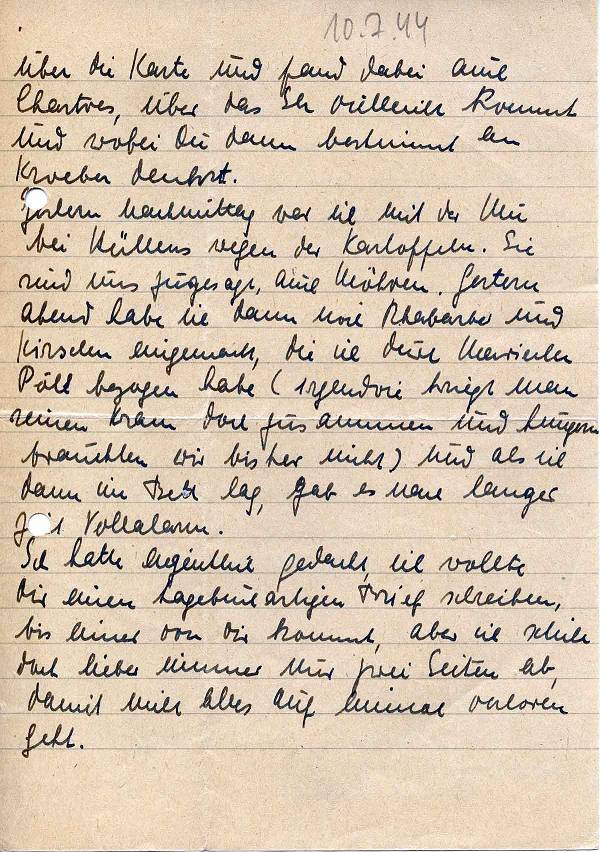 10.7.44
über die Karte und fand dabei auch
Chartres, über das Ihr vielleicht kommt
und wobei Du dann bestimmt an
Kroeber denkst.
Gestern nachmittag war ich mit der Mu
bei Hüllens wegen der Kartoffeln. Sie
sind uns zugesagt, auch Möhren. Gestern
abend habe ich dann noch Rhabarber und
Kirschen eingemacht, die ich durch
Pöll bezogen habe (irgendwie kriegt man
seinen Kram doch zusammen und hungern
brauchten wir bisher nicht) und als ich
dann im Bett lag, gab es nach langer
Zeit Vollalarm.
Ich hatte eigentlich gedacht, ich wollte
Dir einen tagebuchartigen Brief schreiben,
bis einer von Dir kommt, aber ich schicke
doch lieber immer nur zwei Seiten ab,
damit nicht alles auf einmal verloren
geht.